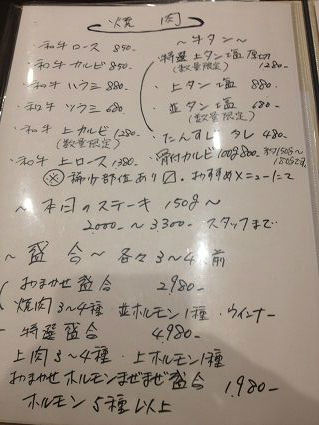 焼肉
・和牛ロース 850-
・和牛カルビ 850-
・和牛ハラミ 880-
・和牛ツラミ 680-
・和牛上カルビ 1280-
(数量限定)
・和牛上ロース 1380-
～牛タン～
特選上タン塩 厚切
(数量限定) 1280-
・上タン塩 880-
・並タン塩 680-
(数量限定)
・たんすじ タレ 480-
・骨付カルビ 100g800-
※ 稀少部位あり 〼。おすすめメニューにて
～本日のステーキ 150g～
2000-～3300- スタッフまで
～盛合～ 各々3～4人前
おまかせ盛合 2,980-
焼肉3～4種 並ホルモン1種・ウインナー
特選盛合 4,980-
上肉3～4種・上ホルモン1種
おまかせホルモンまぜまぜ盛合 1,980-
ホルモン5種以上